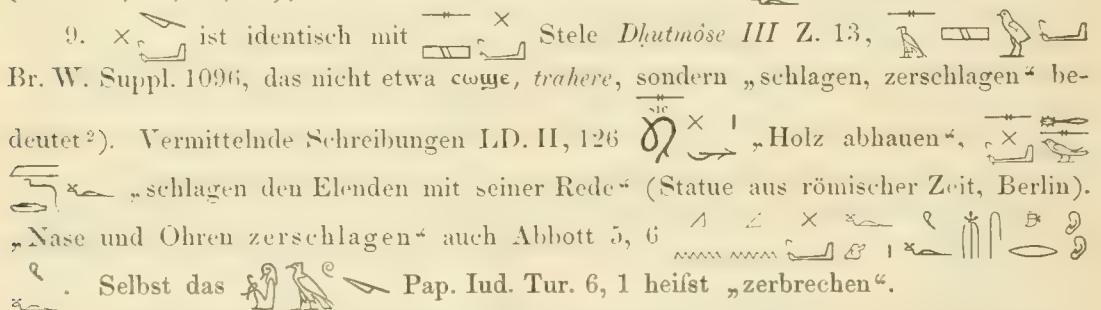 9. ist identisch mit Stele Dḥutmôse III Z. 13,
Br. W. Suppl. 1096, das nicht etwa ⲥⲱϣⲉ, trahere, sondern „schlagen, zerschlagen“ be-
deutet²). Vermittelnde Schreibungen LD. II, 126 „Holz abhauen“,
„schlagen den Elenden mit seiner Rede“ (Statue aus römischer Zeit, Berlin).
„Nase und Ohren zerschlagen“ auch Abbott 5, 6
. Selbst das Pap. Iud. Tur. 6, 1 heifst „zerbrechen“.